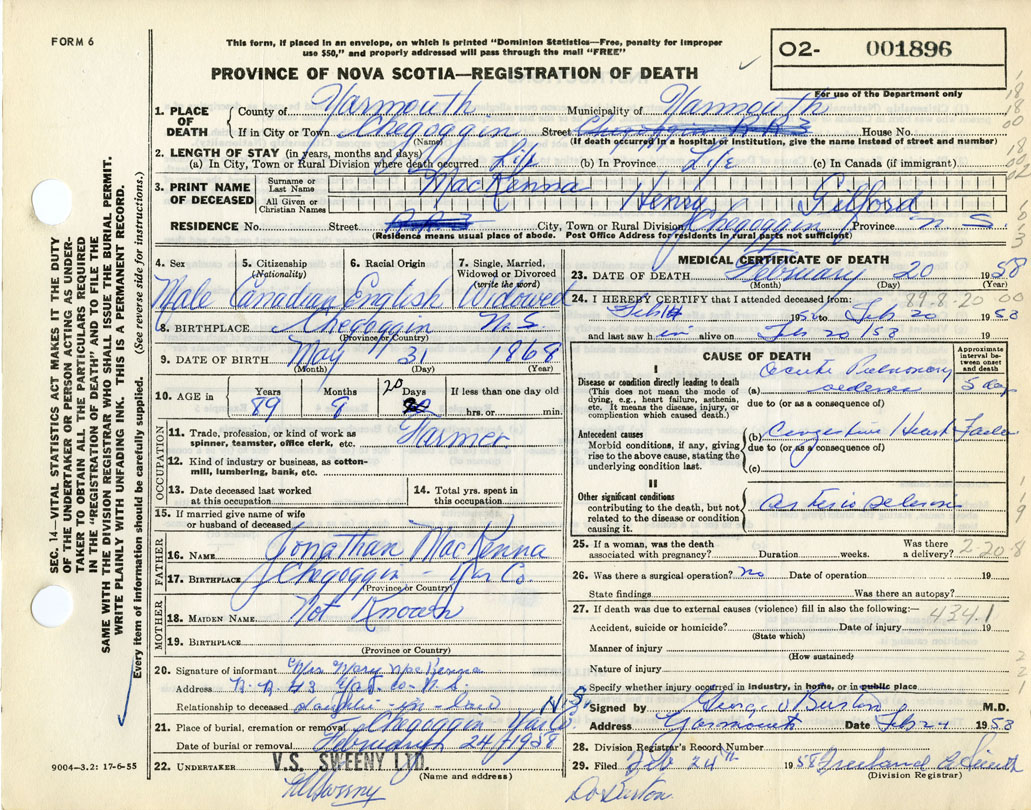 FORM 6
This form, if placed in an envelope, on which is printed "Dominion Statistics—Free, penalty for improper
use $50," and properly addressed will pass through the mail "FREE"
PROVINCE OF NOVA SCOTIA—REGISTRATION OF DEATH
O2- 001896
For use of the Department only
1. PLACE OF DEATH
County of Yarmouth Municipality of Yarmouth
If in City or Town Chegoggin Street Chegoggin R.R.3 House No.
(Name) (If death occurred in a hospital or institution, give the name instead of street and number)
2. LENGTH OF STAY (in years, months and days)
(a) In City, Town or Rural Division where death occurred Life (b) In Province Life (c) In Canada (if immigrant)
3. PRINT NAME OF DECEASED
Surname or Last Name MacKenna
All Given or Christian Names Henry Gilford
RESIDENCE No. Street R.R.3 City, Town or Rural Division Chegoggin Province N S
(Residence means usual place of abode. Post Office Address for residents in rural parts not sufficient)
4. Sex 5. Citizenship (Nationality) 6. Racial Origin 7. Single, Married, Widowed or Divorced (write the word)
Male Canadian English Widowed
8. BIRTHPLACE Chegoggin N.S.
(Province or Country)
9. DATE OF BIRTH May 31 1868
(Month) (Day) (Year)
10. AGE in Years Months Days If less than one day old
89 8 20 hrs. or min.
OCCUPATION
11. Trade, profession, or kind of work as spinner, teamster, office clerk, etc. Farmer
12. Kind of industry or business, as cotton-mill, lumbering, bank, etc.
13. Date deceased last worked at this occupation
14. Total yrs. spent in this occupation
15. If married give name of wife or husband of deceased
FATHER
16. NAME Jonathan MacKenna
17. BIRTHPLACE Chegoggin - Yar Co.
(Province or Country)
MOTHER
18. MAIDEN NAME Not Known
19. BIRTHPLACE
(Province or Country)
20. Signature of informant Mrs Mary MacKenna
Address R.R. #3 Yar. Co. N.S.
Relationship to deceased daughter-in-law
21. Place of burial, cremation or removal Chegoggin Yar Co N.S.
Date of burial or removal February 24/1958
22. UNDERTAKER V.S. SWEENY LTD.
(Name and address)
9004—3.2: 17-6-55
MEDICAL CERTIFICATE OF DEATH
23. DATE OF DEATH February 20 1958
(Month) (Day) (Year)
24. I HEREBY CERTIFY that I attended deceased from: 89.8.20 00
Feb 20 1958
and last saw him alive on Feb 20/58 19
CAUSE OF DEATH
Approximate interval between onset and death
I
Disease or condition directly leading to death
(This does not mean the mode of dying, e.g., heart failure, asthenia, etc. It means the disease, injury, or complication which caused death.)
(a) Acute Pulmonary oedema 5 days
due to (or as a consequence of)
Antecedent causes
Morbid conditions, if any, giving rise to the above cause, stating the underlying condition last.
(b) Congestive Heart Failure
due to (or as a consequence of)
(c)
II
Other significant conditions contributing to the death, but not related to the disease or condition causing it.
arteriosclerosis
25. If a woman, was the death associated with pregnancy? Duration weeks. Was there a delivery? 2 20 8
26. Was there a surgical operation? no Date of operation 19
State findings Was there an autopsy?
27. If death was due to external causes (violence) fill in also the following:— 434.1
Accident, suicide or homicide? Date of injury 19
(State which)
Manner of injury
(How sustained)
Nature of injury
Specify whether injury occurred in industry, in home, or in public place
Signed by George V Burton M.D.
Address Yarmouth Date Feb 24 1958
28. Division Registrar's Record Number
29. Filed Feb 24th 1958 Freeland A Smith
(Division Registrar)
Dr Burton
SEC. 14—VITAL STATISTICS ACT MAKES IT THE DUTY
OF THE UNDERTAKER OR PERSON ACTING AS UNDER-
TAKER TO OBTAIN ALL THE PARTICULARS REQUIRED
IN THE "REGISTRATION OF DEATH" AND TO FILE THE
SAME WITH THE DIVISION REGISTRAR WHO SHALL ISSUE THE BURIAL PERMIT.
WRITE PLAINLY WITH UNFADING INK. THIS IS A PERMANENT RECORD.
Every item of information should be carefully supplied. (See reverse side for instructions.)